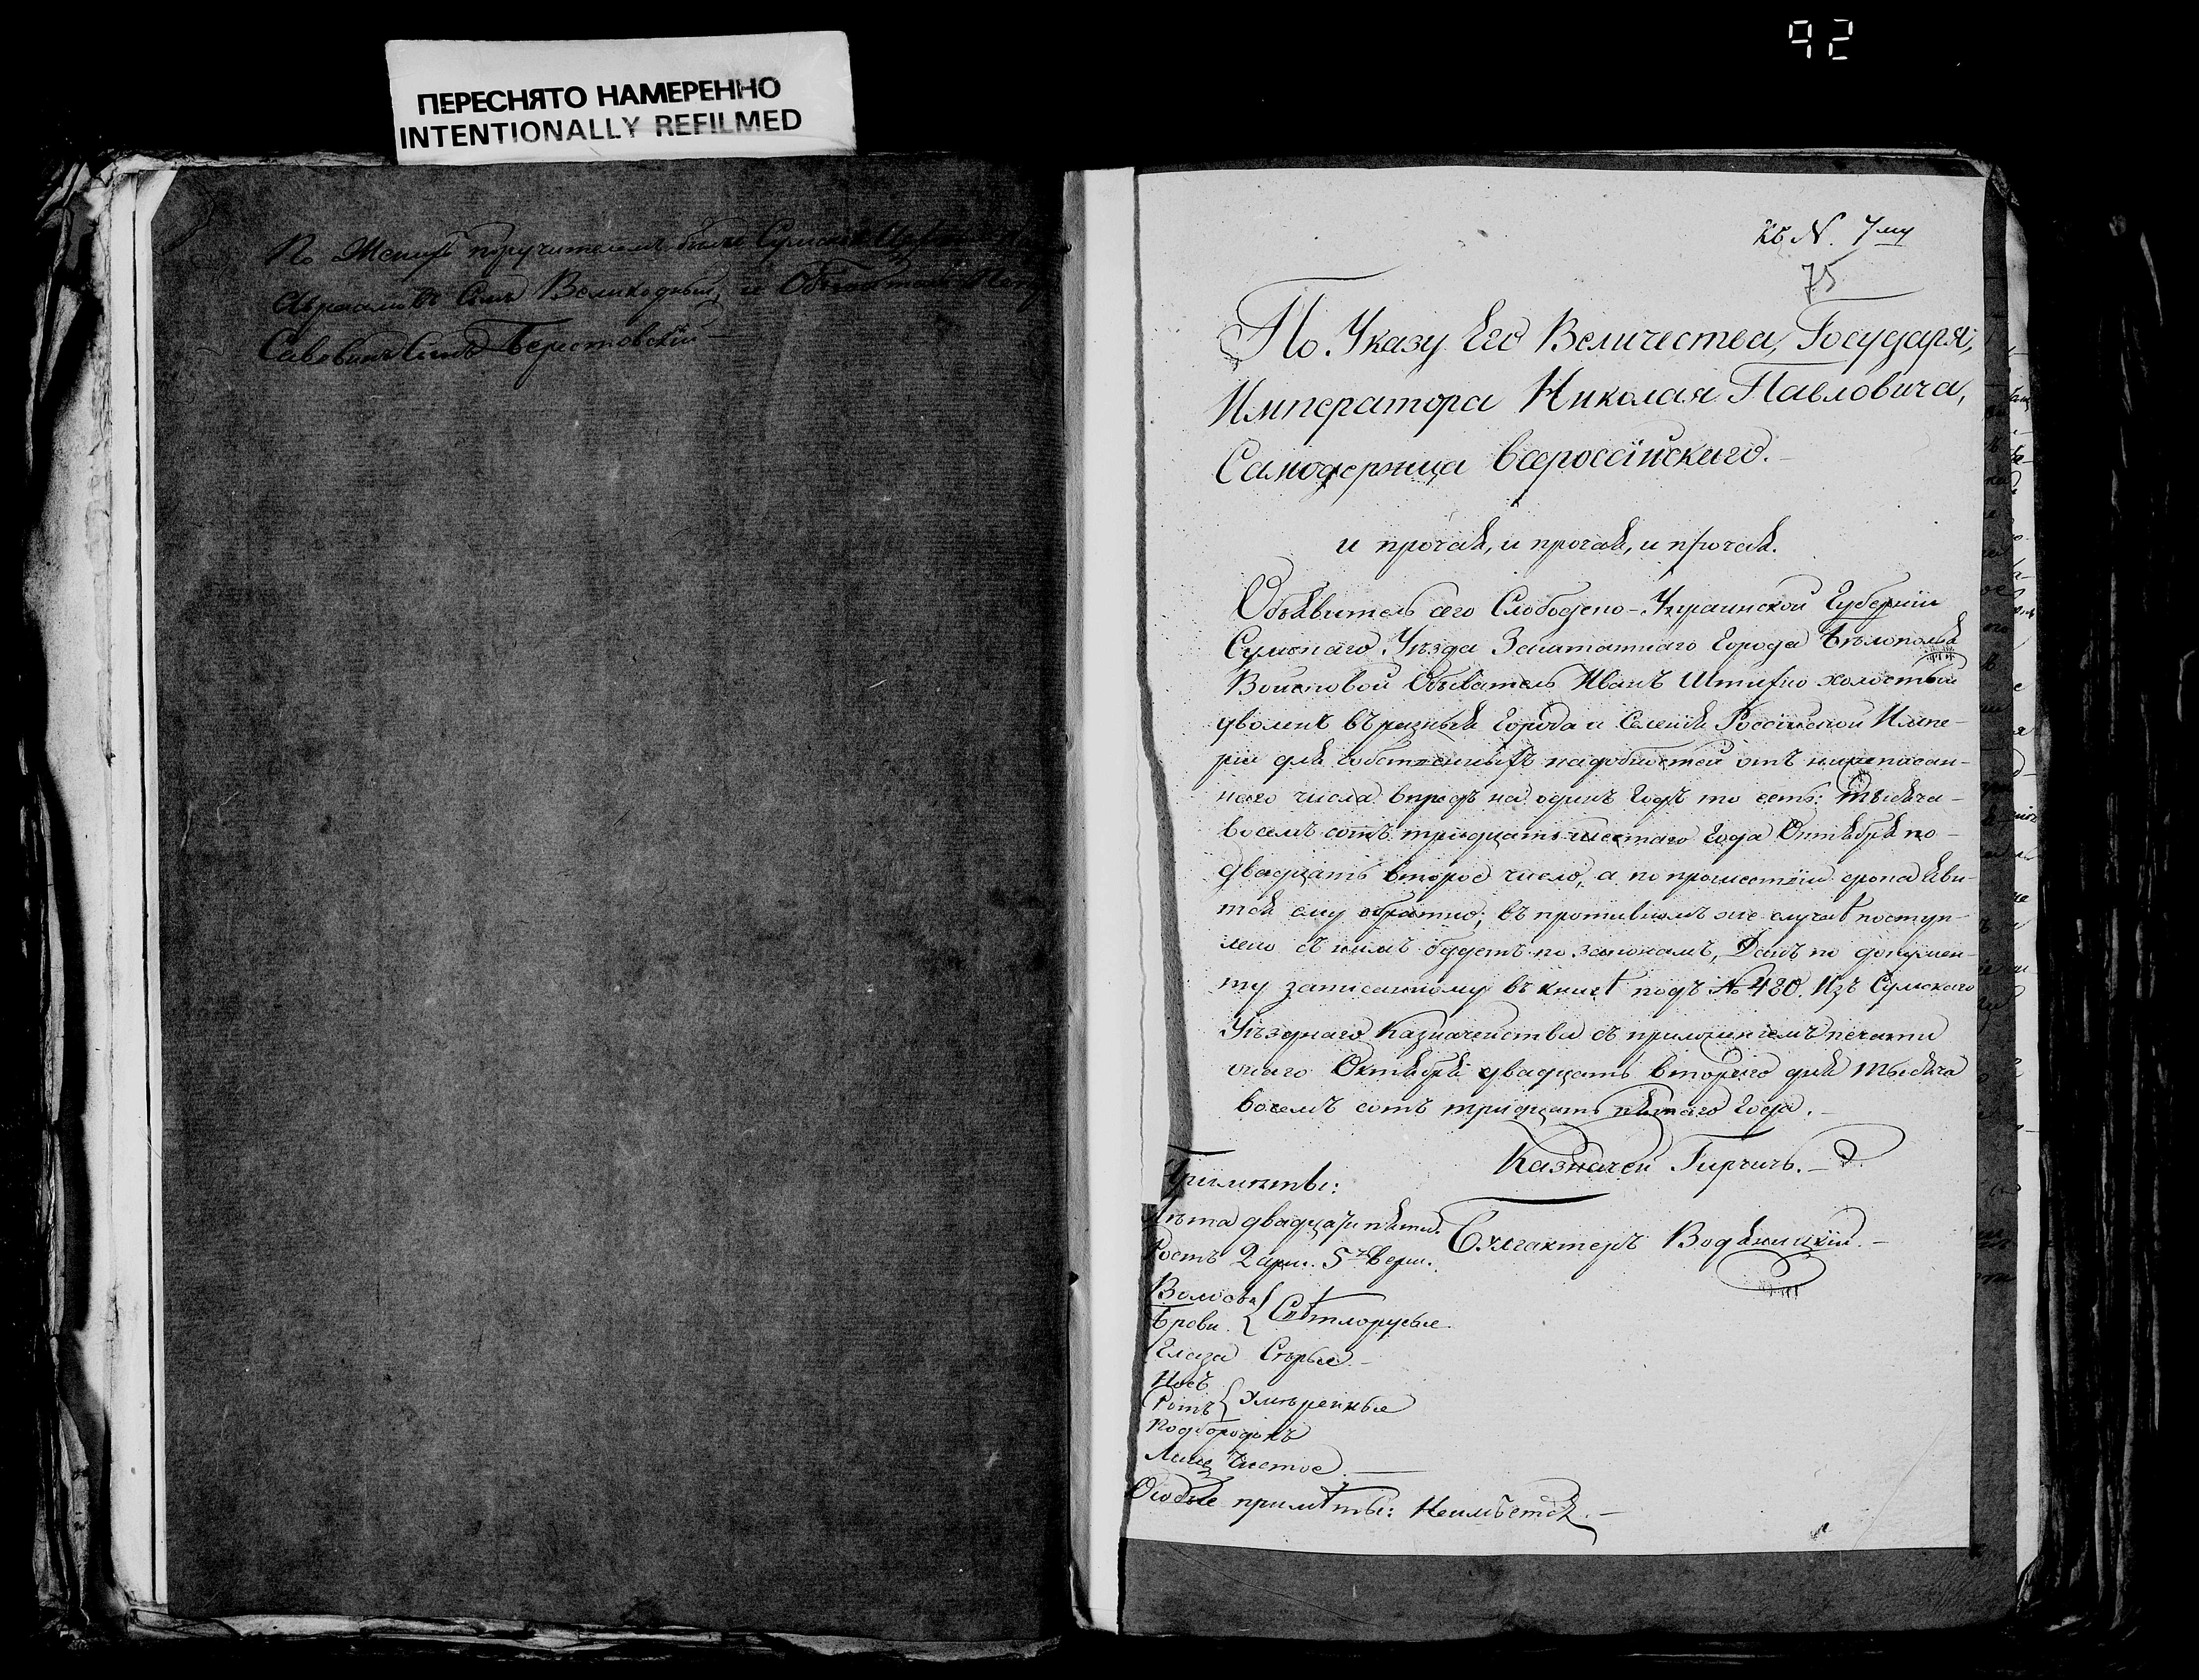 92
ПЕРЕСНЯТО НАМЕРЕННО
INTENTIONALLY REFILMED
По Женихѣ поручителемъ были Сумской
Сынъ Великодный, и Обыватель
Савовинъ Сынъ Берестовскій
Къ N. 7му
75
По Указу Его Величества, Государя,
Императора Николая Павловича,
Самодержца Всероссійскаго.
и прочая, и прочая, и прочая.
Объявитель сего Слободско-Украинской Губерніи
Сумскаго Уѣзда Заштатнаго Города Бѣлополья
Войсковой Обыватель Иванъ холостый
уволенъ въ разныя Города и Селенія Россійской Импе-
ріи для собственныхъ надобностей отъ нижеписан-
наго числа впредь на одинъ Годъ то есть: тысяча-
восемъ сотъ тридцать шестаго Года Октября по-
двадцать второе число, а по прошествіи срока яви-
тся ему обратно; въ противномъ же случаѣ поступ-
лено съ нимъ будетъ по законамъ, Данъ по докумен-
ту записанному въ книгѣ подъ № 480. Изъ Сумскаго
Уѣзднаго Казначейства съ приложеніемъ печати
онаго Октября двадцать втораго дня тысяча
восемъ сотъ тридцать пятаго Года.
Казначей Гирчичь.
Примѣты:
Лѣта двадцати пяти.
Бухгалтеръ Водяницкій.
Ростъ 2 арш. 5 верш.
Волоса
Брови
Свѣтлорусые.
Глаза Сѣрые
Носъ
Ротъ
Умѣренные
Подбородокъ
Лице Чистое.
Особые примѣты: Неимѣется.